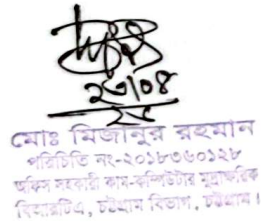 ২৩/০৪
২৫
মোঃ মিজানুর রহমান
পরিচিতি নং-২০১৮৩৬০১২৮
অফিস সহকারী কাম-কম্পিউটার মুদ্রাক্ষরিক
বিআরটিএ, চট্টগ্রাম বিভাগ, চট্টগ্রাম।